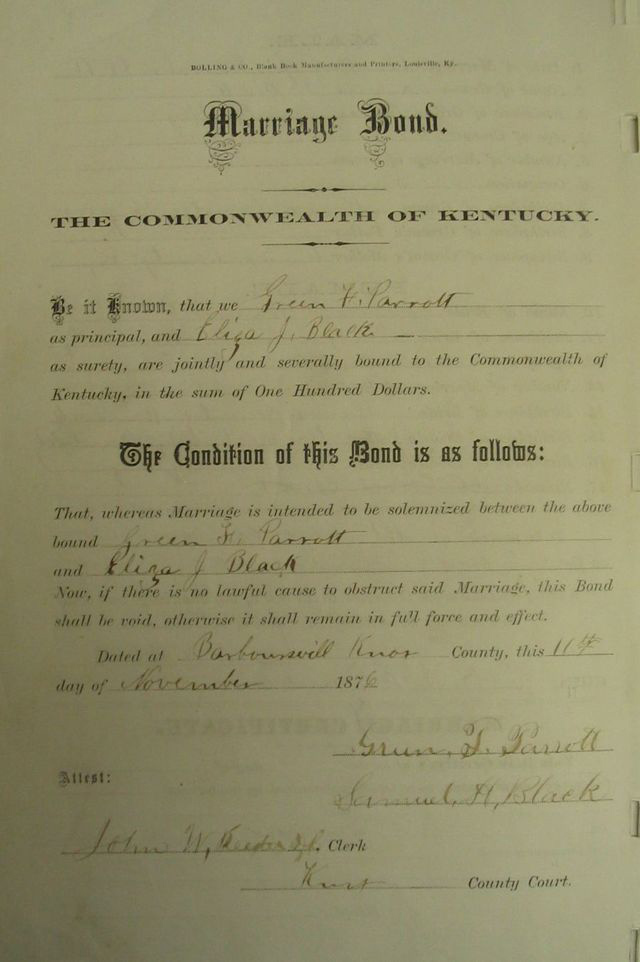 BOLLING & CO., Blank Book Manufacturers and Printers, Louisville, Ky.
Marriage Bond.
THE COMMONWEALTH OF KENTUCKY.
Be it Known, that we Green F. Parrott
as principal, and Eliza J. Black
as surety, are jointly and severally bound to the Commonwealth of
Kentucky, in the sum of One Hundred Dollars.
The Condition of this Bond is as follows:
That, whereas Marriage is intended to be solemnized between the above
bound Green F. Parrott
and Eliza J Black
Now, if there is no lawful cause to obstruct said Marriage, this Bond
shall be void, otherwise it shall remain in full force and effect.
Dated at Barboursvill Knox County, this 11th
day of November 1876
Green. F. Parrott
Attest:
Samuel, H, Black
John W, Clerk
County Court.